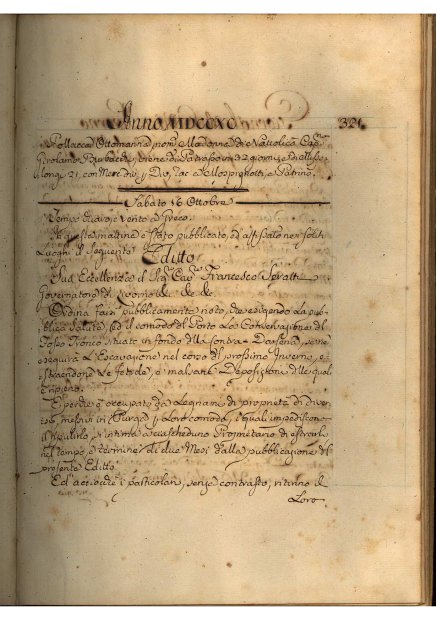 Anno MDCCXC 321
Pollacca Ottomanna nom.ª Madonna di Nattolica Cap.no
Girolamo viene da Patrasso in 32 giorni, e da
longi 21, con Marc. e Pass.
Sabato 16 Ottobre
Tempo chiaro, e vento a Greco.
In questa mattina è stato pubblicato, ed affisso ne' soliti
Luoghi il seguente Editto
Sua Eccellenza il Sig. Cav. Francesco Seratti
Governatore di Livorno &c. &c. &c.
Ordina farsi pubblicamente noto, che esigendo la pub-
blica salute, ed il comodo del Porto la Conservazione del
Fosso situato in fondo della contra-Darsena, verrà
eseguita l'Escavazione nel corso del prossimo Inverno, e-
straendone le fetide, e malsane Deposizioni delle quali
è ripieno.
E perchè è occupato da Legnami di proprietà di diver-
si, messivi in Purga per loro comodo, i quali impedirono
s'intima a ciascheduno Proprietario di estrarli
nel tempo, e termine di due Mesi dalla pubblicazione del
presente Editto.
Ed acciochè i particolari, senza contrasto, ritirino i
Loro